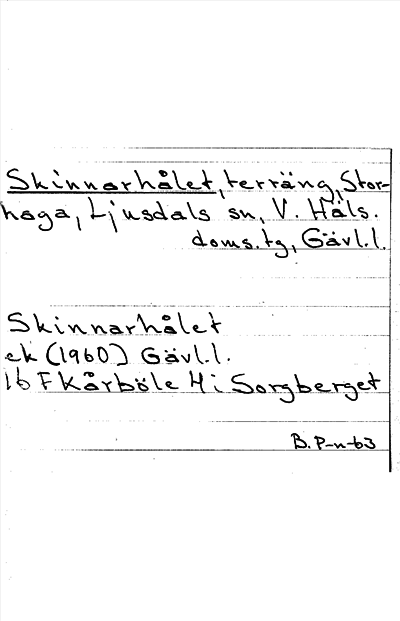 Skinnarhålet, terräng, Stor-
haga, Ljusdals sn, V. Häls.
doms.tg, Gävl.l.
Skinnarhålet
ek (1960) Gävl.l.
16 F Kårböle 4 i Sorgberget
B. P-n-63